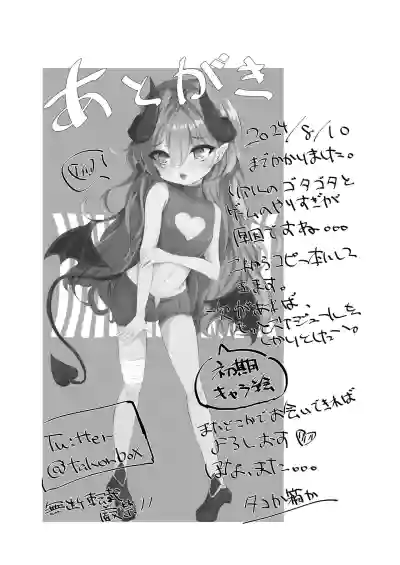 あとがき
2024/8/10
までかかりました。
リアルのゴタゴタと
ゲームのやりすぎが
原因ですね...
コピー本にして
ます。
があれば、
スケジュールを
しかりとしたい。
初期
キャラ絵
またどこかでお会いできれば
よろしおす
ほな、また...
タコが箱か
Twitter
@takonbox
無断転載
厳禁!!